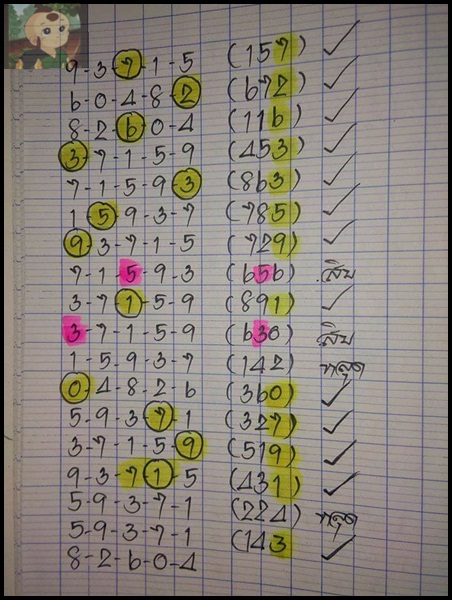 9-3-7-1-5 (157) ✓
6-0-4-8-2 (672) ✓
8-2-6-0-4 (116) ✓
3-7-1-5-9 (453) ✓
7-1-5-9-3 (863) ✓
1-5-9-3-7 (785) ✓
9-3-7-1-5 (729) ✓
7-1-5-9-3 (656) สิบ
3-7-1-5-9 (891) ✓
3-7-1-5-9 (630) สิบ
1-5-9-3-7 (142) หลุด
0-4-8-2-6 (360) ✓
5-9-3-7-1 (327) ✓
3-7-1-5-9 (519) ✓
9-3-7-1-5 (431) ✓
5-9-3-7-1 (224) หลุด
5-9-3-7-1 (143 ✓
8-2-6-0-4